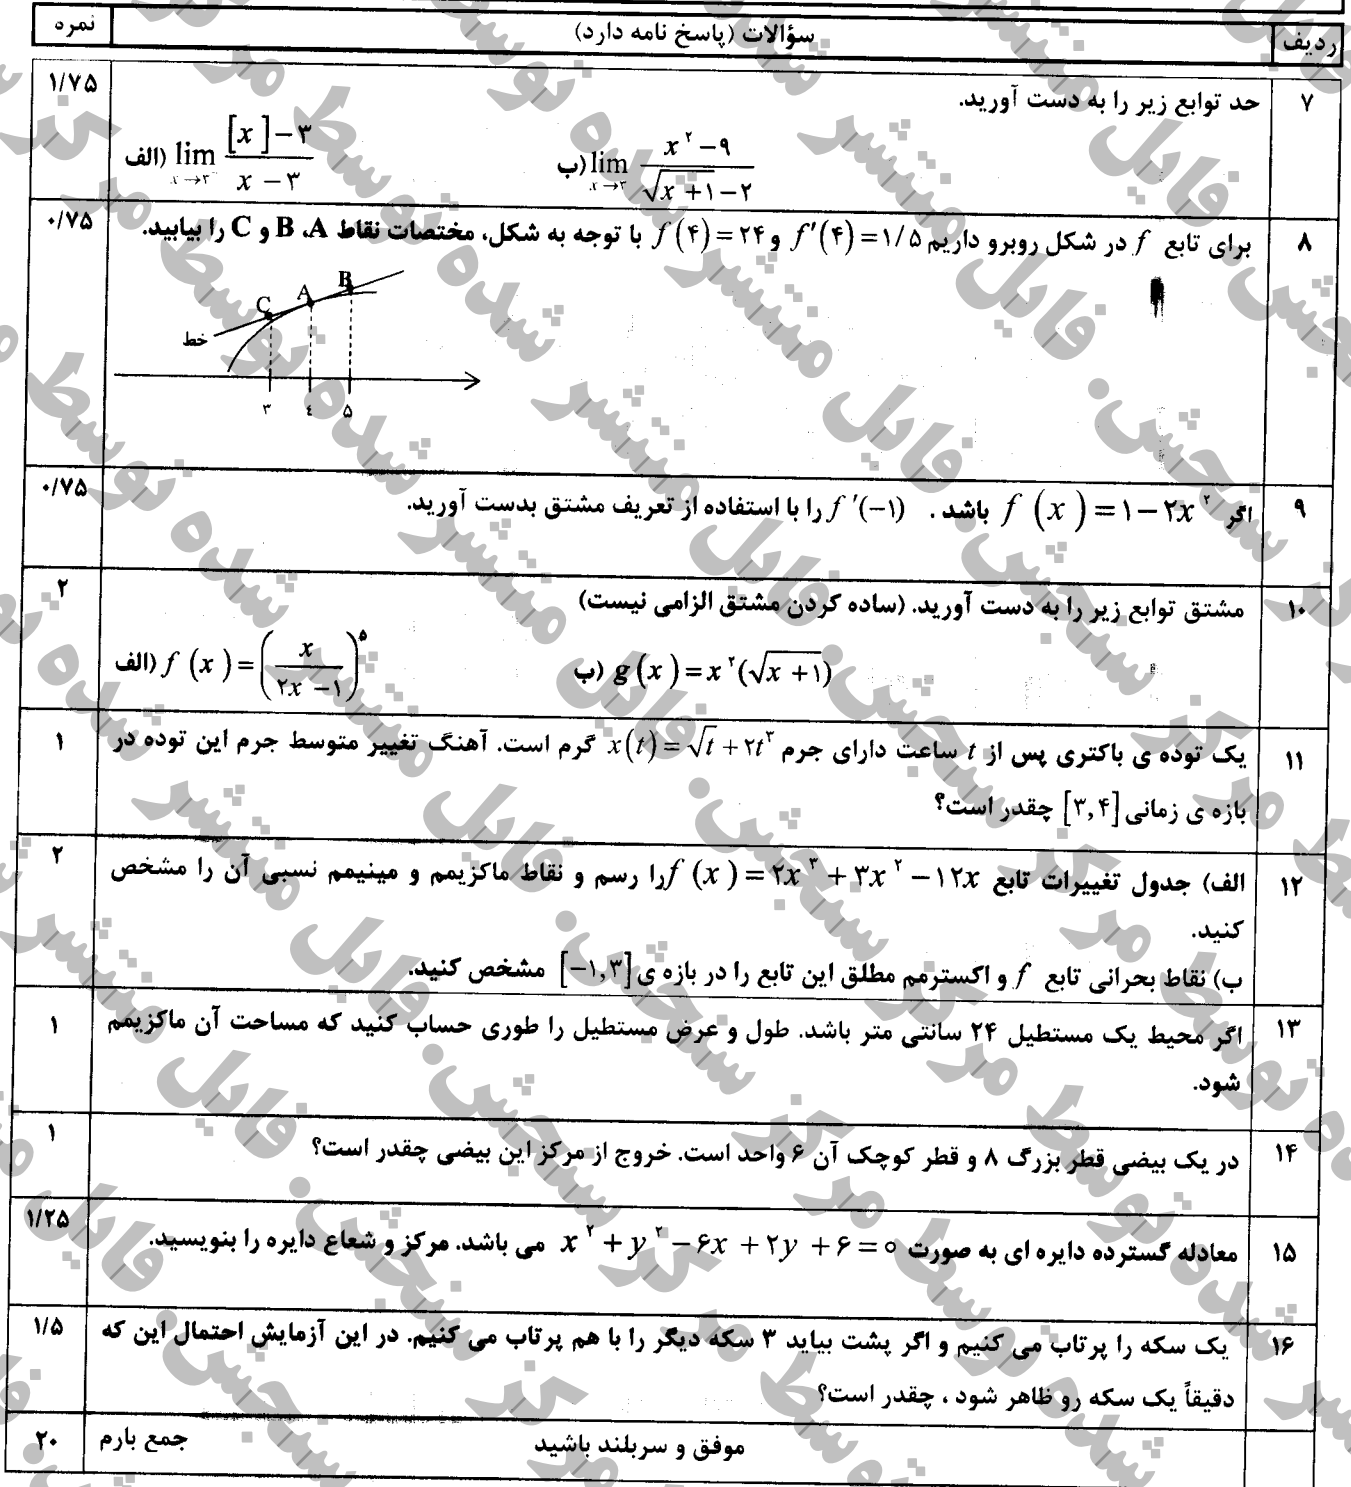 ردیف سؤالات (پاسخ نامه دارد) نمره
۷ حد توابع زیر را به دست آورید. ۱/۷۵
الف) lim x→۳⁻ ([x]−۳)/(x−۳) ب) lim x→۳ (x²−۹)/(√(x+۱)−۲)
۸ برای تابع f در شکل روبرو داریم f′(۴)=۱/۵ و f(۴)=۲۴ با توجه به شکل، مختصات نقاط A، B و C را بیابید. ۰/۷۵
C A B
خط
۳ ٤ ۵
۹ اگر f(x)=۱−۲x² باشد . f′(−۱) را با استفاده از تعریف مشتق بدست آورید. ۰/۷۵
۱۰ مشتق توابع زیر را به دست آورید. (ساده کردن مشتق الزامی نیست) ۲
الف) f(x)=(x/(۲x−۱))⁵ ب) g(x)=x²(√(x+۱))
۱۱ یک توده ی باکتری پس از t ساعت دارای جرم x(t)=√t+۲t³ گرم است. آهنگ تغییر متوسط جرم این توده در ۱
بازه ی زمانی [۳,۴] چقدر است؟
۱۲ الف) جدول تغییرات تابع f(x)=۲x³+۳x²−۱۲x را رسم و نقاط ماکزیمم و مینیمم نسبی آن را مشخص ۲
کنید.
ب) نقاط بحرانی تابع f و اکسترمم مطلق این تابع را در بازه ی [−۱,۳] مشخص کنید.
۱۳ اگر محیط یک مستطیل ۲۴ سانتی متر باشد. طول و عرض مستطیل را طوری حساب کنید که مساحت آن ماکزیمم ۱
شود.
۱۴ در یک بیضی قطر بزرگ ۸ و قطر کوچک آن ۶ واحد است. خروج از مرکز این بیضی چقدر است؟ ۱
۱۵ معادله گسترده دایره ای به صورت x²+y²−۶x+۲y+۶=۰ می باشد. مرکز و شعاع دایره را بنویسید. ۱/۲۵
۱۶ یک سکه را پرتاب می کنیم و اگر پشت بیاید ۳ سکه دیگر را با هم پرتاب می کنیم. در این آزمایش احتمال این که ۱/۵
دقیقاً یک سکه رو ظاهر شود ، چقدر است؟
موفق و سربلند باشید جمع بارم ۲۰
فایل منتشر شده توسط مرکز سنجش.